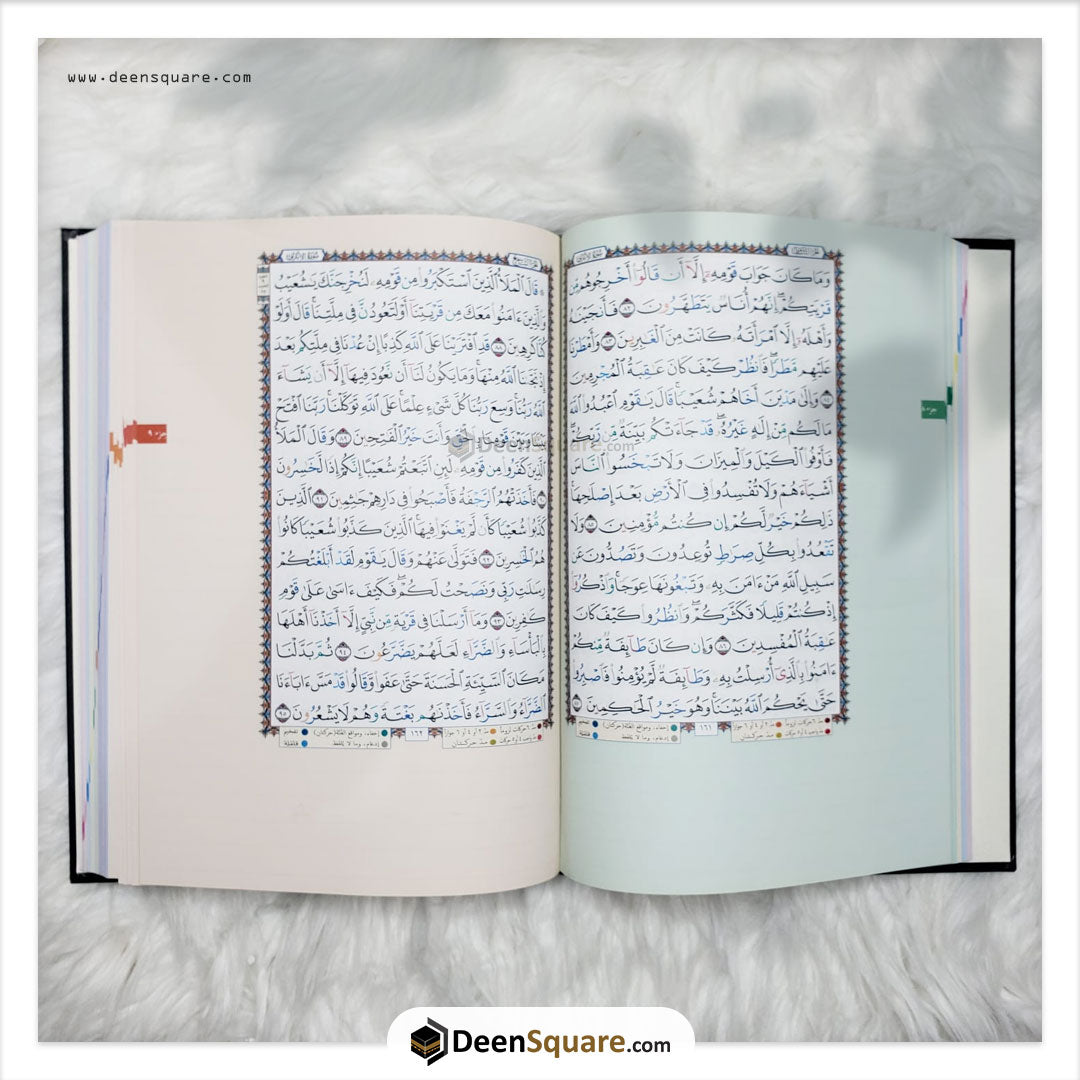 www.deensquare.com
سورة الأعراف
وَمَا كَانَ جَوَابَ قَوْمِهِۦٓ إِلَّآ أَن قَالُوٓا۟ أَخْرِجُوهُم مِّن
قَرْيَتِكُمْ ۖ إِنَّهُمْ أُنَاسٌ يَتَطَهَّرُونَ ٨٢ فَأَنجَيْنَٰهُ
وَأَهْلَهُۥٓ إِلَّا ٱمْرَأَتَهُۥ كَانَتْ مِنَ ٱلْغَٰبِرِينَ ٨٣ وَأَمْطَرْنَا
عَلَيْهِم مَّطَرًا ۖ فَٱنظُرْ كَيْفَ كَانَ عَٰقِبَةُ ٱلْمُجْرِمِينَ
٨٤ وَإِلَىٰ مَدْيَنَ أَخَاهُمْ شُعَيْبًا ۗ قَالَ يَٰقَوْمِ ٱعْبُدُوا۟ ٱللَّهَ
مَا لَكُم مِّنْ إِلَٰهٍ غَيْرُهُۥ ۖ قَدْ جَآءَتْكُم بَيِّنَةٌ مِّن رَّبِّكُمْ ۖ
فَأَوْفُوا۟ ٱلْكَيْلَ وَٱلْمِيزَانَ وَلَا تَبْخَسُوا۟ ٱلنَّاسَ
أَشْيَآءَهُمْ وَلَا تُفْسِدُوا۟ فِى ٱلْأَرْضِ بَعْدَ إِصْلَٰحِهَا ۚ
ذَٰلِكُمْ خَيْرٌ لَّكُمْ إِن كُنتُم مُّؤْمِنِينَ ٨٥ وَلَا
تَقْعُدُوا۟ بِكُلِّ صِرَٰطٍ تُوعِدُونَ وَتَصُدُّونَ عَن
سَبِيلِ ٱللَّهِ مَنْ ءَامَنَ بِهِۦ وَتَبْغُونَهَا عِوَجًا ۚ وَٱذْكُرُوٓا۟
إِذْ كُنتُمْ قَلِيلًا فَكَثَّرَكُمْ ۖ وَٱنظُرُوا۟ كَيْفَ كَانَ
عَٰقِبَةُ ٱلْمُفْسِدِينَ ٨٦ وَإِن كَانَ طَآئِفَةٌ مِّنكُمْ
ءَامَنُوا۟ بِٱلَّذِىٓ أُرْسِلْتُ بِهِۦ وَطَآئِفَةٌ لَّمْ يُؤْمِنُوا۟ فَٱصْبِرُوا۟
حَتَّىٰ يَحْكُمَ ٱللَّهُ بَيْنَنَا ۚ وَهُوَ خَيْرُ ٱلْحَٰكِمِينَ ٨٧
١٦١
جزء ٨
سورة الأعراف
۞ قَالَ ٱلْمَلَأُ ٱلَّذِينَ ٱسْتَكْبَرُوا۟ مِن قَوْمِهِۦ لَنُخْرِجَنَّكَ يَٰشُعَيْبُ
وَٱلَّذِينَ ءَامَنُوا۟ مَعَكَ مِن قَرْيَتِنَآ أَوْ لَتَعُودُنَّ فِى مِلَّتِنَا ۚ قَالَ أَوَلَوْ
كُنَّا كَٰرِهِينَ ٨٨ قَدِ ٱفْتَرَيْنَا عَلَى ٱللَّهِ كَذِبًا إِنْ عُدْنَا فِى مِلَّتِكُم بَعْدَ
إِذْ نَجَّىٰنَا ٱللَّهُ مِنْهَا ۚ وَمَا يَكُونُ لَنَآ أَن نَّعُودَ فِيهَآ إِلَّآ أَن يَشَآءَ
ٱللَّهُ رَبُّنَا ۚ وَسِعَ رَبُّنَا كُلَّ شَىْءٍ عِلْمًا ۚ عَلَى ٱللَّهِ تَوَكَّلْنَا ۚ رَبَّنَا ٱفْتَحْ
بَيْنَنَا وَبَيْنَ قَوْمِنَا بِٱلْحَقِّ وَأَنتَ خَيْرُ ٱلْفَٰتِحِينَ ٨٩ وَقَالَ ٱلْمَلَأُ
ٱلَّذِينَ كَفَرُوا۟ مِن قَوْمِهِۦ لَئِنِ ٱتَّبَعْتُمْ شُعَيْبًا إِنَّكُمْ إِذًا لَّخَٰسِرُونَ
٩٠ فَأَخَذَتْهُمُ ٱلرَّجْفَةُ فَأَصْبَحُوا۟ فِى دَارِهِمْ جَٰثِمِينَ ٩١ ٱلَّذِينَ
كَذَّبُوا۟ شُعَيْبًا كَأَن لَّمْ يَغْنَوْا۟ فِيهَا ۚ ٱلَّذِينَ كَذَّبُوا۟ شُعَيْبًا كَانُوا۟
هُمُ ٱلْخَٰسِرِينَ ٩٢ فَتَوَلَّىٰ عَنْهُمْ وَقَالَ يَٰقَوْمِ لَقَدْ أَبْلَغْتُكُمْ
رِسَٰلَٰتِ رَبِّى وَنَصَحْتُ لَكُمْ ۖ فَكَيْفَ ءَاسَىٰ عَلَىٰ قَوْمٍ
كَٰفِرِينَ ٩٣ وَمَآ أَرْسَلْنَا فِى قَرْيَةٍ مِّن نَّبِىٍّ إِلَّآ أَخَذْنَآ أَهْلَهَا
بِٱلْبَأْسَآءِ وَٱلضَّرَّآءِ لَعَلَّهُمْ يَضَّرَّعُونَ ٩٤ ثُمَّ بَدَّلْنَا
مَكَانَ ٱلسَّيِّئَةِ ٱلْحَسَنَةَ حَتَّىٰ عَفَوا۟ وَّقَالُوا۟ قَدْ مَسَّ ءَابَآءَنَا
ٱلضَّرَّآءُ وَٱلسَّرَّآءُ فَأَخَذْنَٰهُم بَغْتَةً وَهُمْ لَا يَشْعُرُونَ ٩٥
١٦٢
جزء ٩
DeenSquare.com
DeenSquare.com